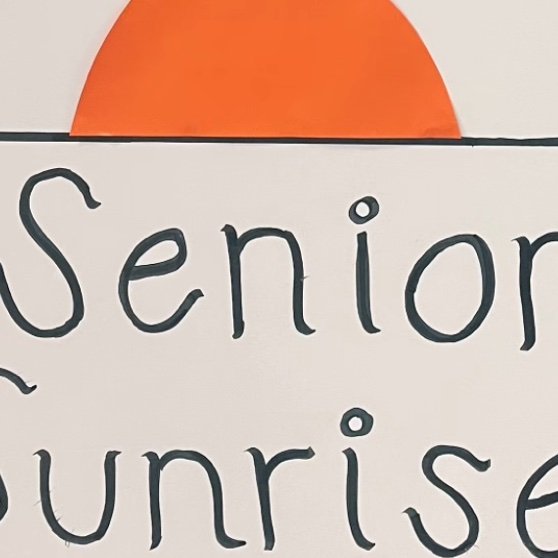 Senior
Sunrise